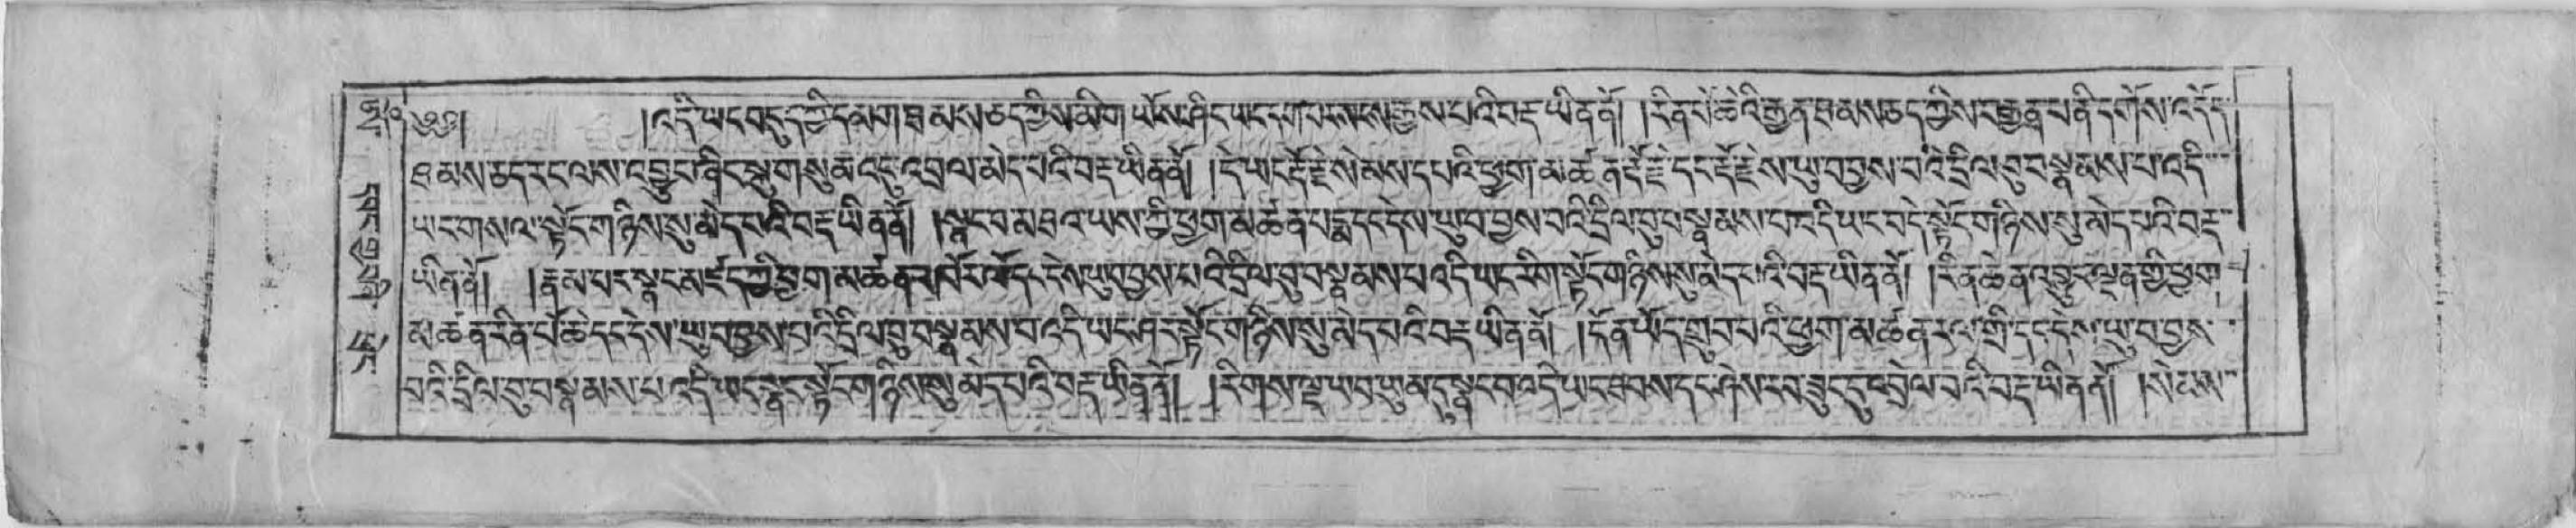 ༄༅། །འདི་ཡང་བདུད་ཀྱི་དམག་ཐམས་ཅད་ཀྱིས་མིག་ཡོས་ཤིང་ཡང་དག་པར་སངས་རྒྱས་པའི་བརྡ་ཡིན་ནོ། །རིན་པོ་ཆེའི་རྒྱན་ཐམས་ཅད་ཀྱིས་བརྒྱན་པ་ནི་དགོས་འདོད་
ཐམས་ཅད་རང་ལས་འབྱུང་ཞིང་སྐུ་གསུམ་འདུ་འབྲལ་མེད་པའི་བརྡ་ཡིན་ནོ། །དེ་ཡང་རྡོ་རྗེ་སེམས་དཔའི་ཕྱག་མཚན་རྡོ་རྗེ་དང་རྡོ་རྗེས་ཡུ་བ་བྱས་པའི་དྲིལ་བུ་བསྣམས་པ་འདི་
ཡང་གསལ་སྟོང་གཉིས་སུ་མེད་པའི་བརྡ་ཡིན་ནོ། །སྣང་བ་མཐའ་ཡས་ཀྱི་ཕྱག་མཚན་པདྨ་དང་དེས་ཡུ་བ་བྱས་པའི་དྲིལ་བུ་བསྣམས་པ་འདི་ཡང་བདེ་སྟོང་གཉིས་སུ་མེད་པའི་བརྡ་
ཡིན་ནོ། །རྣམ་པར་སྣང་མཛད་ཀྱི་ཕྱག་མཚན་འཁོར་ལོ་དང་དེས་ཡུ་བ་བྱས་པའི་དྲིལ་བུ་བསྣམས་པ་འདི་ཡང་རིག་སྟོང་གཉིས་སུ་མེད་པའི་བརྡ་ཡིན་ནོ། །རིན་ཆེན་འབྱུང་ལྡན་གྱི་ཕྱག་
མཚན་རིན་པོ་ཆེ་དང་དེས་ཡུ་བ་བྱས་པའི་དྲིལ་བུ་བསྣམས་པ་འདི་ཡང་ཤར་སྟོང་གཉིས་སུ་མེད་པའི་བརྡ་ཡིན་ནོ། །དོན་ཡོད་གྲུབ་པའི་ཕྱག་མཚན་རལ་གྲི་དང་དེས་ཡུ་བ་བྱས་
པའི་དྲིལ་བུ་བསྣམས་པ་འདི་ཡང་སྣང་སྟོང་གཉིས་སུ་མེད་པའི་བརྡ་ཡིན་ནོ། །རིགས་ལྔ་ཡབ་ཡུམ་དུ་སྣང་བ་འདི་ཡང་ཐབས་དང་ཤེས་རབ་ཟུང་དུ་འབྲེལ་བའི་བརྡ་ཡིན་ནོ། །སེམས་